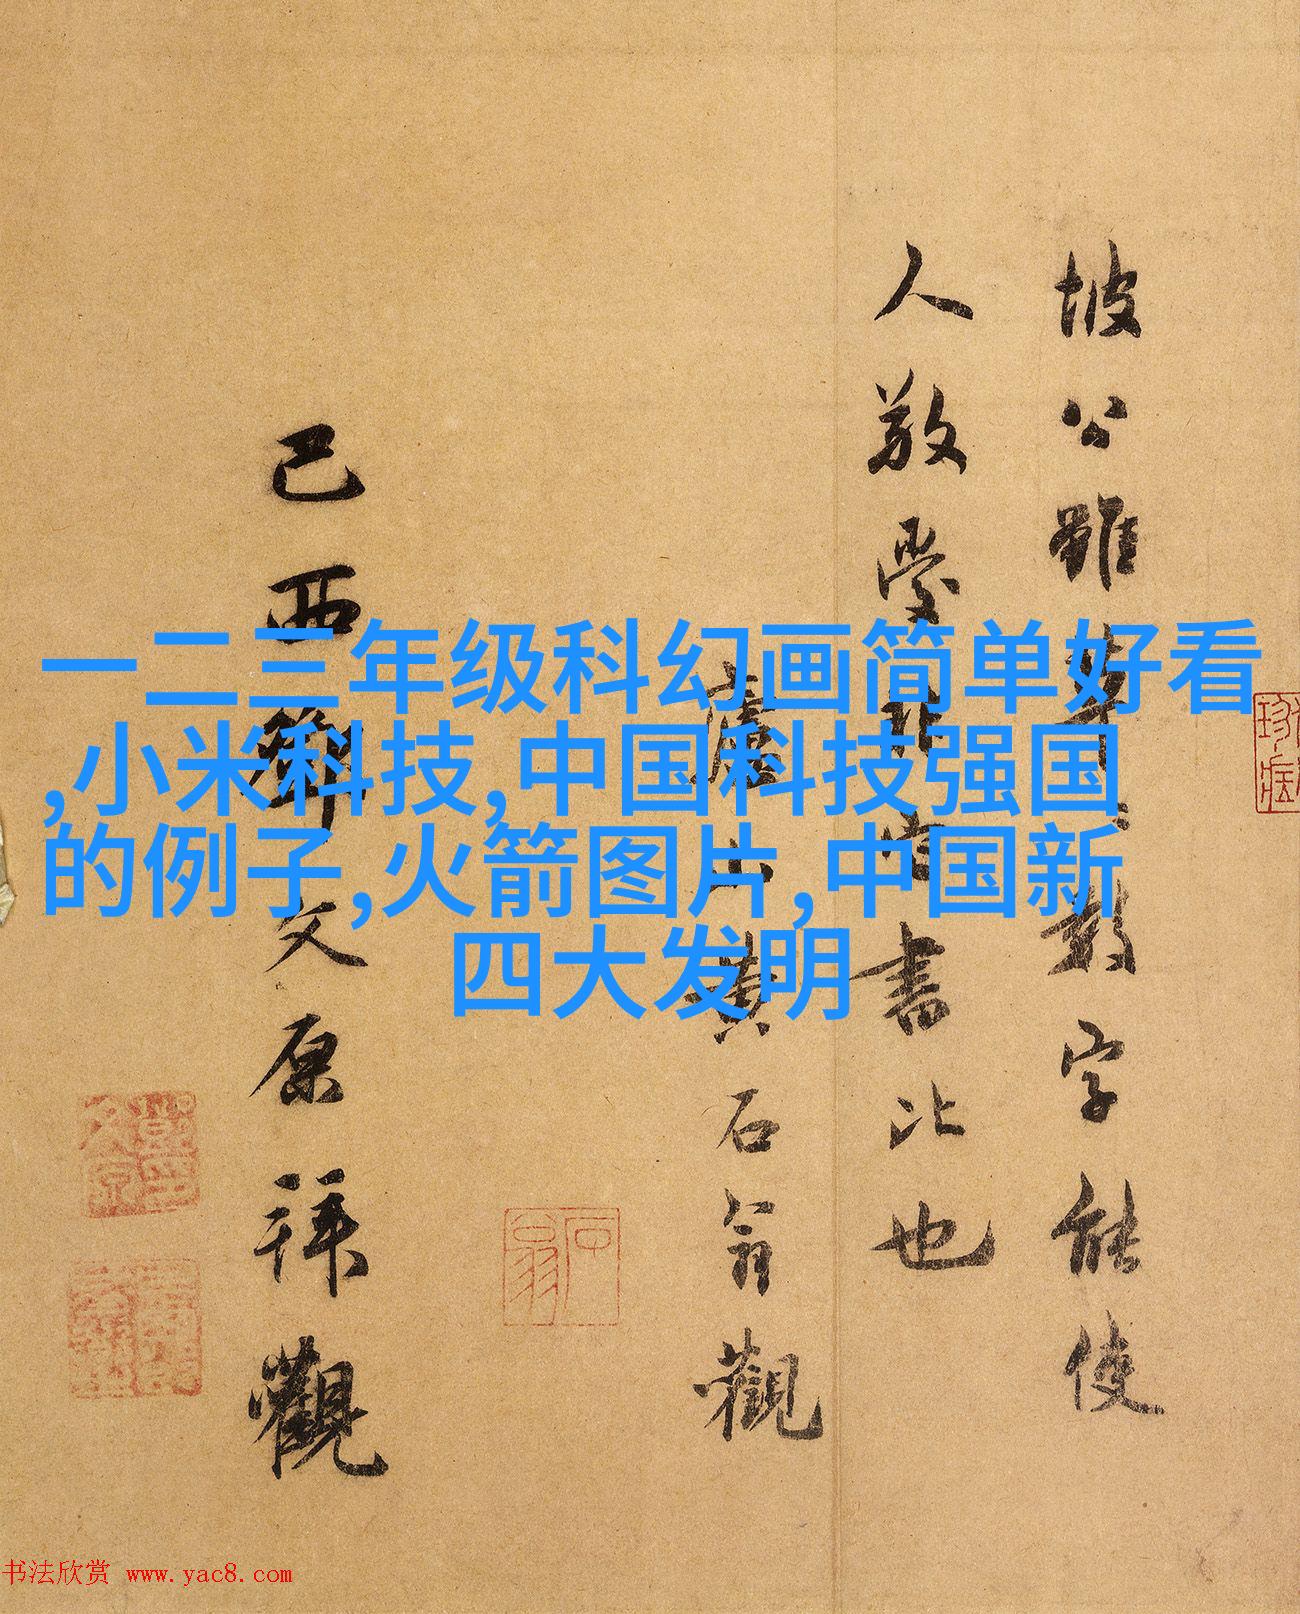 坡公雖草草數字能使
人敬愛非書比也
廬山黃石翁觀
己酉鄧文原拜觀
石翁
一二三年级科幻画简单好看
,小米科技,中国科技强国
的例子,火箭图片,中国新
四大发明
书法欣赏 www.yac8.com